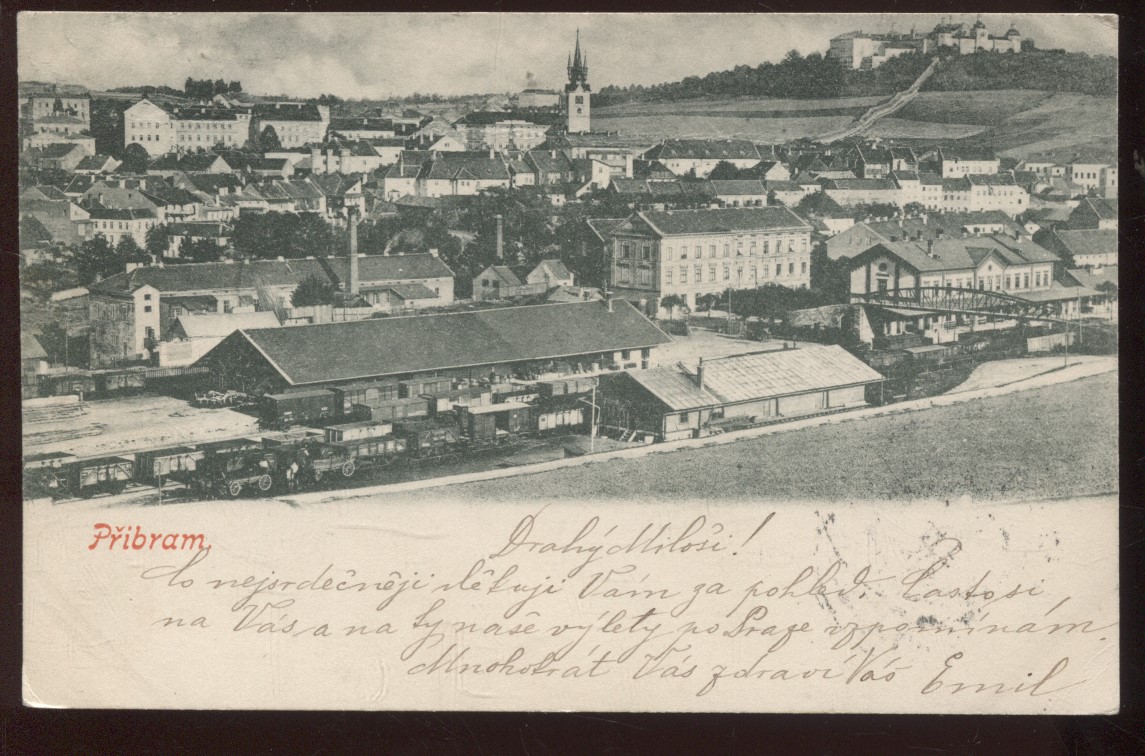 Příbram.
Drahý Miloši!
Co nejsrdečněji děkuji Vám za pohled. Často si
na Vás a na ty naše výlety po Praze vzpomínám.
Mnohokrát Vás zdraví Váš Emil